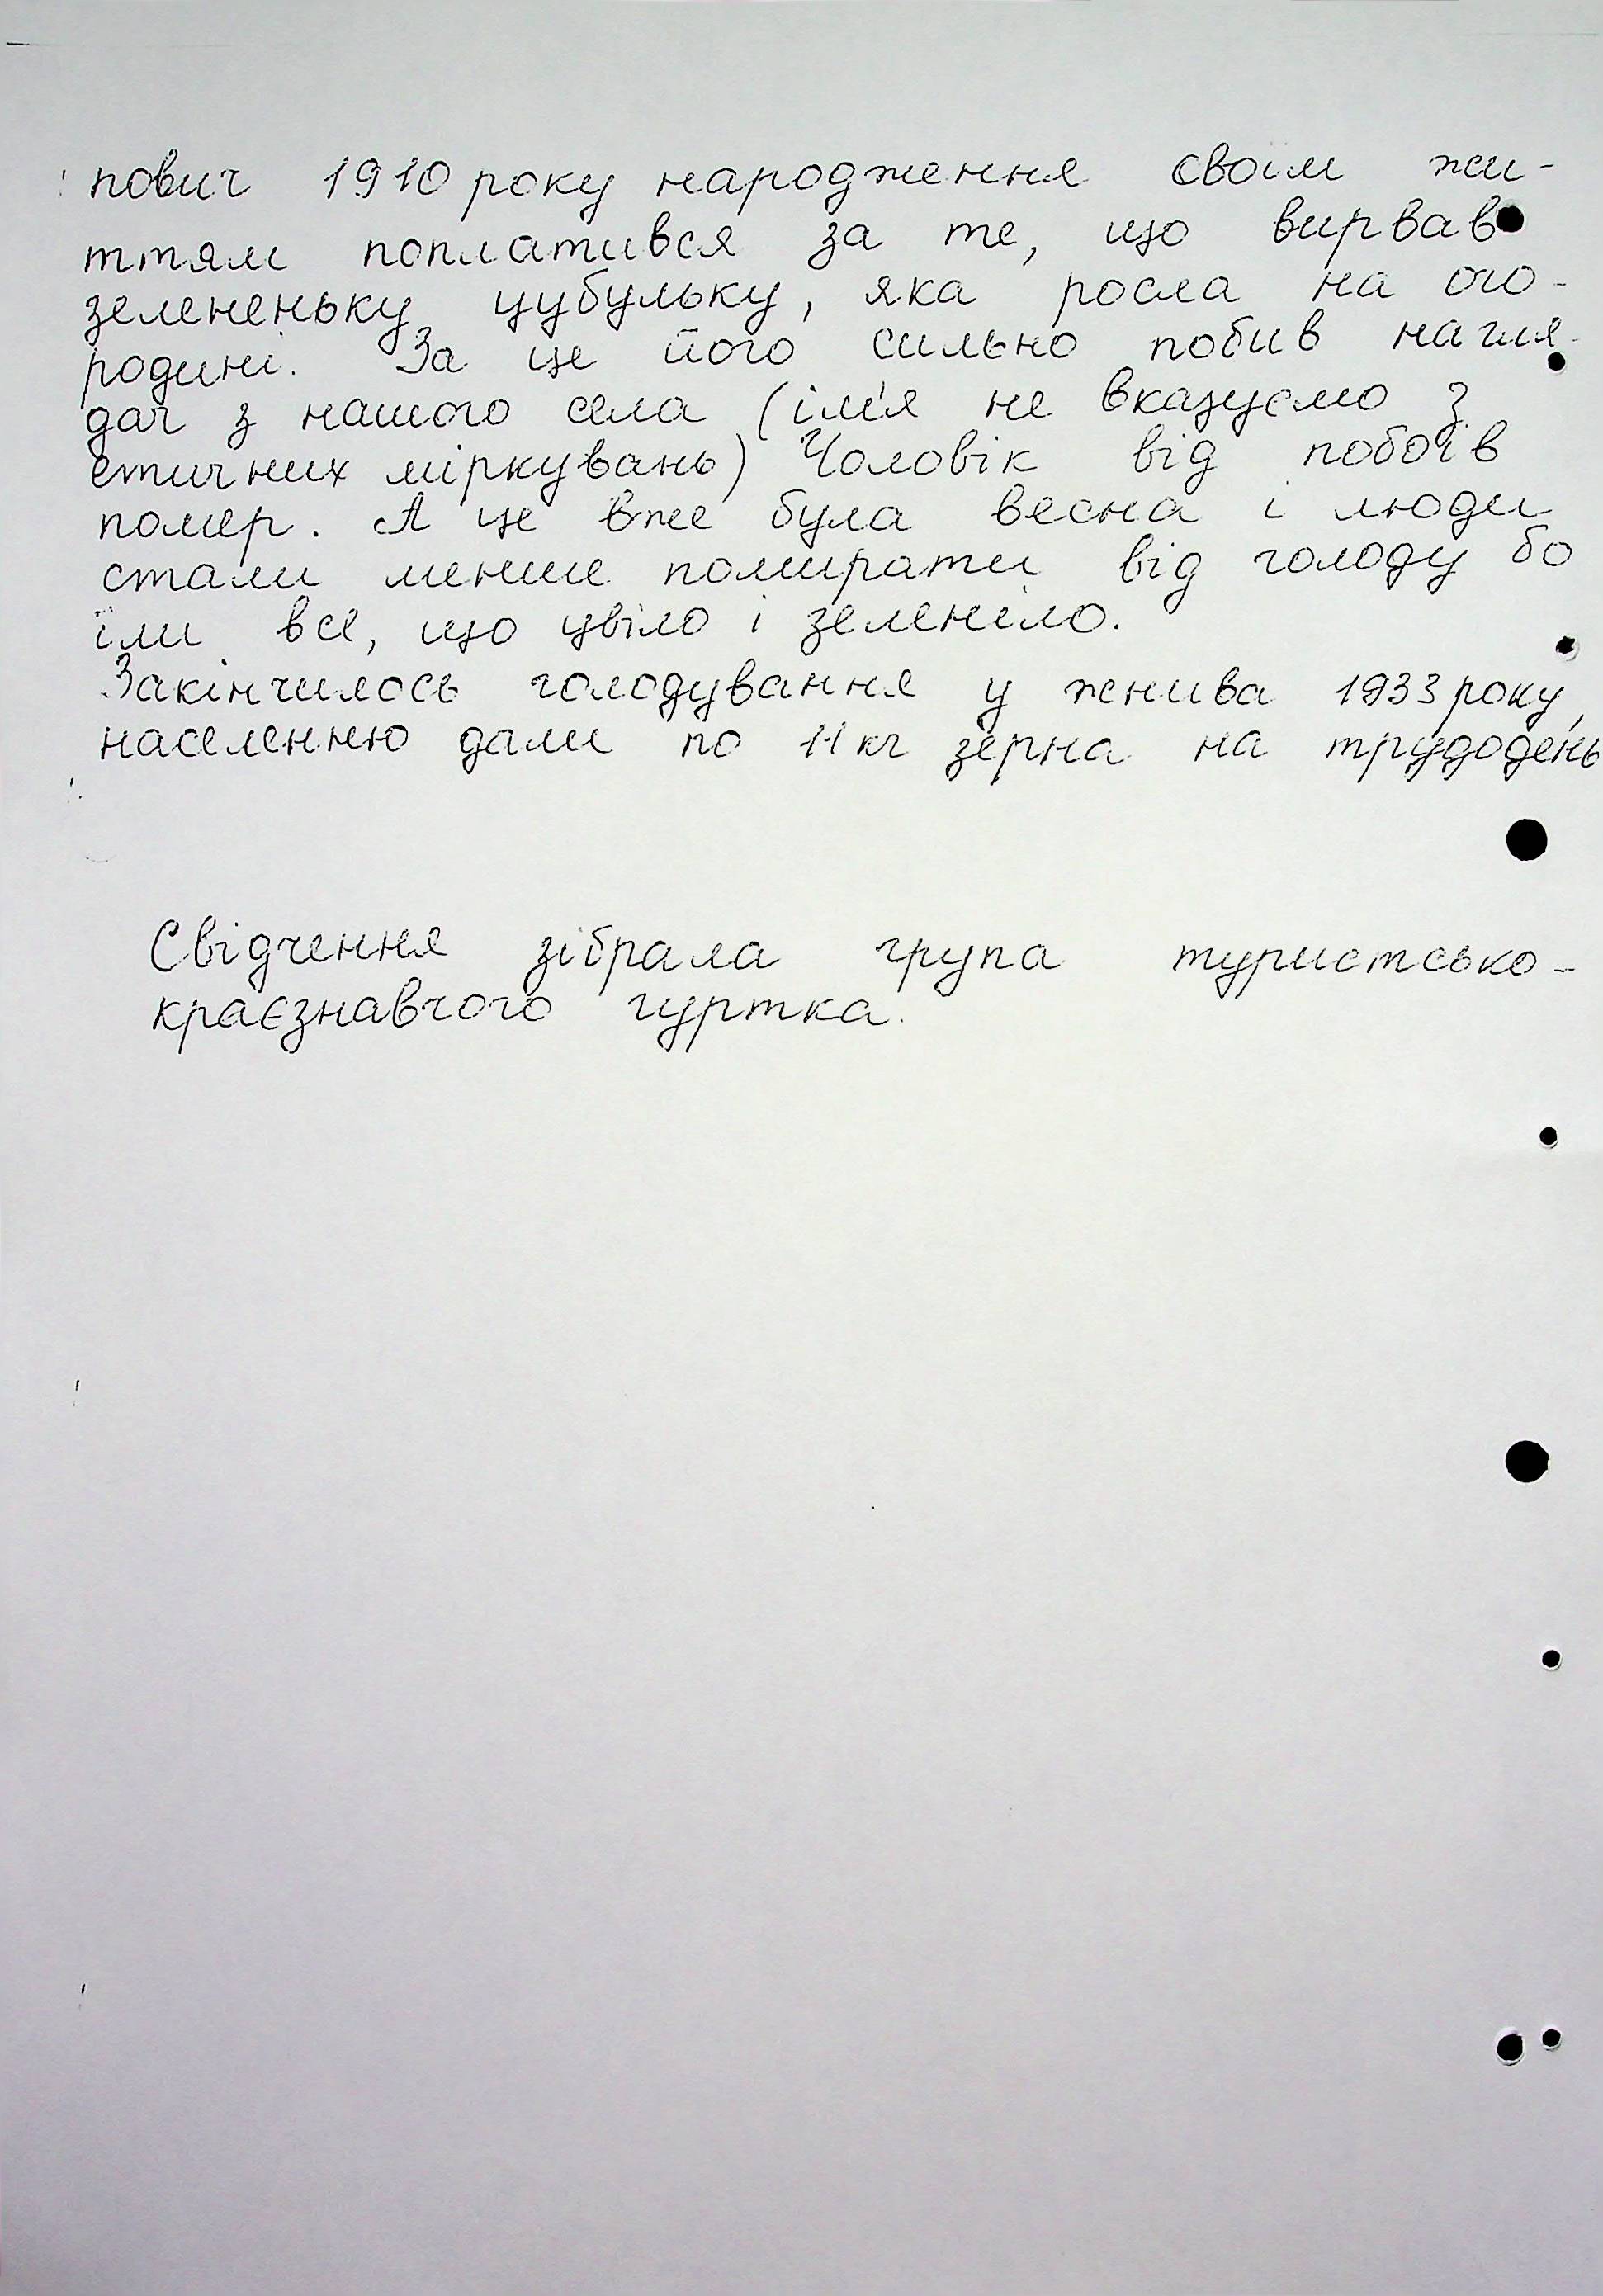 пович 1910 року народження своїм жи-
ттям поплатився за те, що вирвав
зелененьку цубульку, яка росла на ого-
родині. За це його сильно побив нагля-
дач з нашого села (ім'я не вказуємо з
етичних міркувань) Чоловік від побоїв
помер. А це вже була весна і люди
стали менше помирати від голоду бо
їли все, що цвіло і зеленіло.
Закінчилось голодування у жнива 1933 року,
населенню дали по 11 кг зерна на трудодень
Свідчення зібрала група туристсько-
краєзнавчого гуртка.